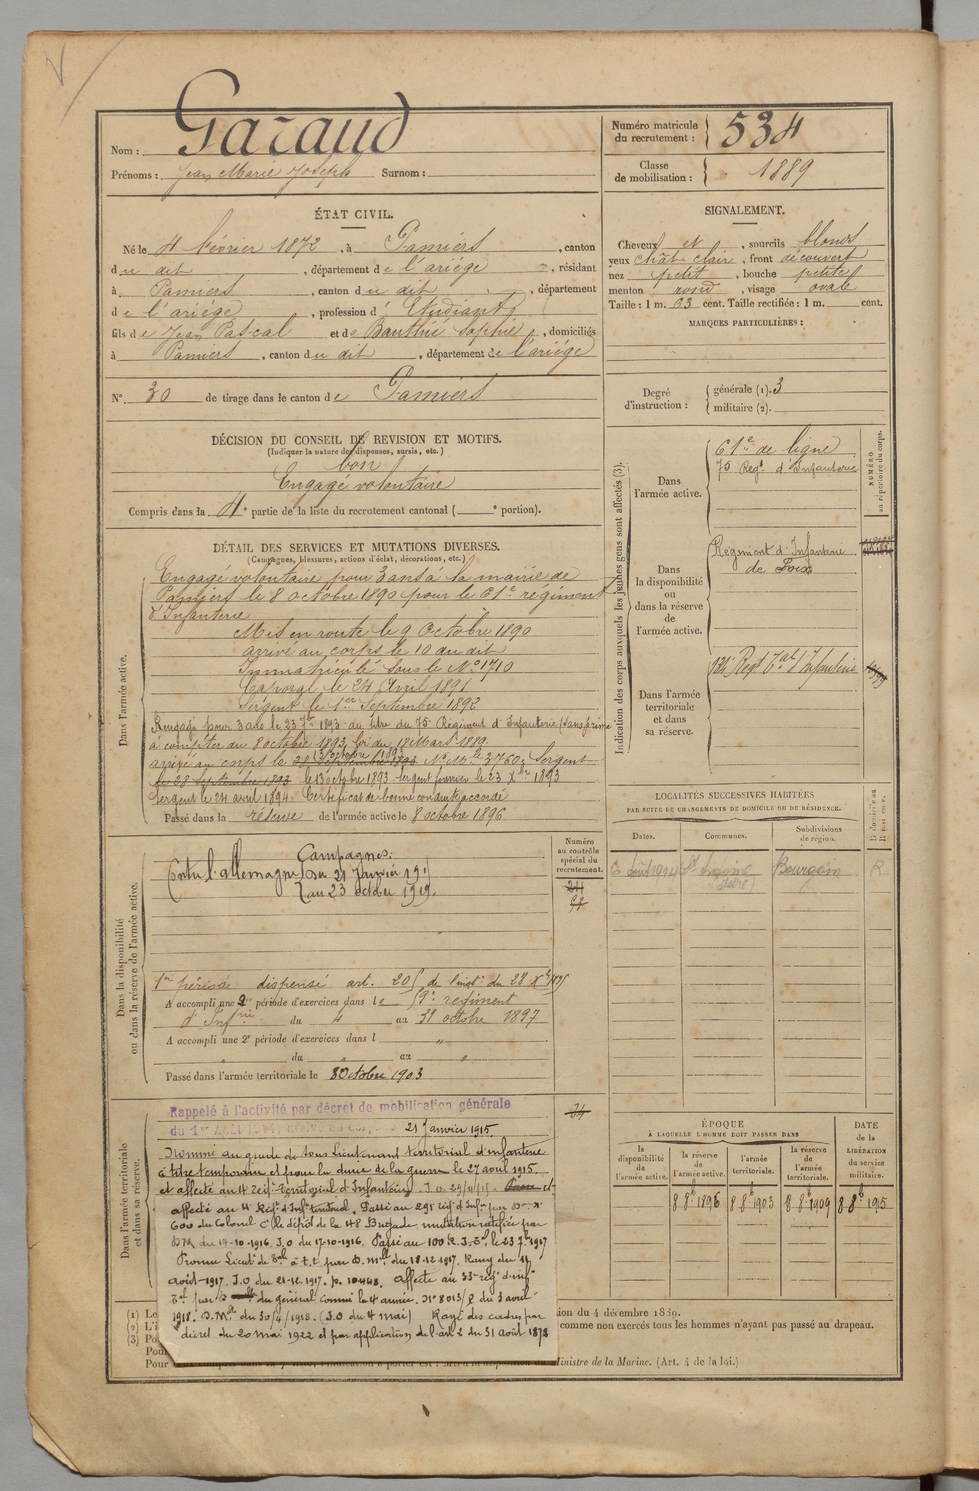 Nom : Garaud
Prénoms : Jean Marie Joseph Surnom :
Numéro matricule du recrutement : 534
Classe de mobilisation : 1889
ÉTAT CIVIL.
Né le 4 février 1872, à Pamiers, canton
du dit, département de l'ariège, résidant
à Pamiers, canton du dit, département
de l'ariège, profession d' Etudiant
fils de Jean Pascal et de Gauthié Sophie, domiciliés
à Pamiers, canton du dit, département de l'ariège
N° 30 de tirage dans le canton de Pamiers
SIGNALEMENT.
Cheveux et, sourcils blonds
yeux chât. clair, front découvert
nez petit, bouche petite
menton rond, visage ovale
Taille : 1 m. 63 cent. Taille rectifiée : 1 m. cent.
MARQUES PARTICULIÈRES :
Degré d'instruction : générale (1). 3
militaire (2).
DÉCISION DU CONSEIL DE REVISION ET MOTIFS.
(Indiquer la nature des dispenses, sursis, etc.)
bon
Engagé volontaire
Compris dans la 4e partie de la liste du recrutement cantonal ( e portion).
DÉTAIL DES SERVICES ET MUTATIONS DIVERSES.
(Campagnes, blessures, actions d'éclat, décorations, etc.)
Dans l'armée active.
Engagé volontaire pour 3 ans à la mairie de
Pamiers le 8 octobre 1890 pour le 61e régiment
d'Infanterie
Mis en route le 9 Octobre 1890
arrivé au corps le 10 du dit
Immatriculé sous le N° 1710
Caporal le 24 Avril 1891
Sergent le 1er Septembre 1892
Rengagé pour 3 ans le 23 7bre 1893 au titre du 75e Régiment d'Infanterie (sans prime
à compter du 8 octobre 1893, loi du 18 Mars 1889.
13 octobre 1893
arrivé au corps le 28 Septembre 1893 N° Mle 3760, Sergent
le 28 Septembre 1893 le 13 octobre 1893 Sergent fourrier le 23 Xbre 1893
Sergent le 24 avril 1894 Certificat de bonne conduite accordé
Passé dans la réserve de l'armée active le 8 octobre 1896
Indication des corps auxquels les jeunes gens sont affectés (3).
Dans l'armée active.
61e de ligne
75 Regt d'Infanterie
NUMÉRO au répertoire du corps.
Dans la disponibilité ou dans la réserve de l'armée active.
Régiment d'Infanterie
de Foix
Dans l'armée territoriale et dans sa réserve.
134 Regt Tal d'Infanterie
LOCALITÉS SUCCESSIVES HABITÉES
PAR SUITE DE CHANGEMENTS DE DOMICILE OU DE RÉSIDENCE.
Dates. Communes. Subdivisions de région. Domicile ou Résidence.
août 1914 St Antoine (Isère) Bourgoin R
Dans la disponibilité ou dans la réserve de l'armée active.
Numéro au contrôle spécial du recrutement.
Campagnes:
Contre l'allemagne du 21 Janvier 191
au 23 octobre 1919.
1re période dispensé art. 20 de l'inston du 28 Xbre
A accompli une 2e période d'exercices dans le 59e régiment
d'Infrie du 4 au 31 octobre 1897
A accompli une 2e période d'exercices dans l "
" du " au "
Passé dans l'armée territoriale le 8 Octobre 1903
Dans l'armée territoriale et dans sa réserve.
Rappelé à l'activité par décret de mobilisation générale
du 1er Août 21 Janvier 1915
Nommé au grade de sous Lieutenant territorial d'infanterie
à titre temporaire et pour la durée de la guerre le 27 août 1915.
et affecté au 4 Regt territorial d'Infanterie et
affecté au 4e Régt d'Infie territorial. Passé au 291 régt d'Infie par
600 du Colonel Ct le dépôt de la 48 Brigade, mutation ratifiée par
D.M. du 14-10-1916. J.O du 17-10-1916. Passé au 100 R.I.T. le 23 7bre 1917
Promu Lieut. de Tale à t.t. par D.Mlle du 18-12-1917. Rang du
août 1917. J.O du 21-12-1917. p. 10448. Affecté au 33e régt d'Inf
Tal par du général commt la 4e armée. N° 8013/P du 3 avril
1918. D.Mlle du 30/4/1918. (J.O du 4 mai) Rayé des cadres par
décret du 20 mai 1922 et par application de l'art 2 du 31 août 1878
ÉPOQUE
À LAQUELLE L'HOMME DOIT PASSER DANS
la disponibilité de l'armée active. la réserve de l'armée active. l'armée territoriale. la réserve de l'armée territoriale.
DATE de la LIBÉRATION du service militaire.
8 8b 1896 8 8b 1903 8 8b 1909 8 8b 1915
(1) Le
(2) L'i
(3) Pou
Pour
Pour
ion du 4 décembre 1889.
comme non exercés tous les hommes n'ayant pas passé au drapeau.
Ministre de la Marine. (Art. 4 de la loi.)